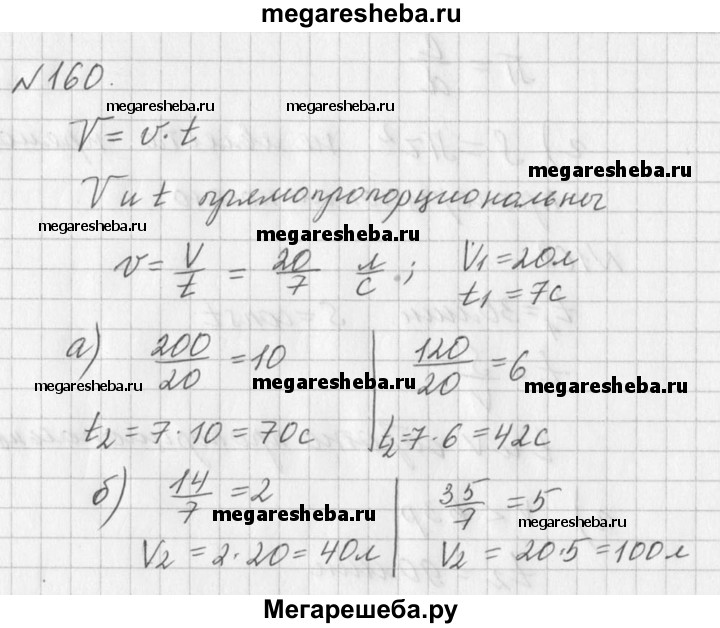 megaresheba.ru
№160.
megaresheba.ru megaresheba.ru
V = v·t
megaresheba.ru
V и t прямопропорциональны
megaresheba.ru megaresheba.ru
v = V/t = 20/7 л/с.; V₁ = 20л
t₁ = 7с
а) 200/20 = 10 | 120/20 = 6
megaresheba.ru megaresheba.ru megaresheba.ru
t₂ = 7·10 = 70с | t₂ = 7·6 = 42с
б) 14/7 = 2 | 35/7 = 5
megaresheba.ru megaresheba.ru
V₂ = 2·20 = 40л | V₂ = 20·5 = 100л
Мегарешеба.ру